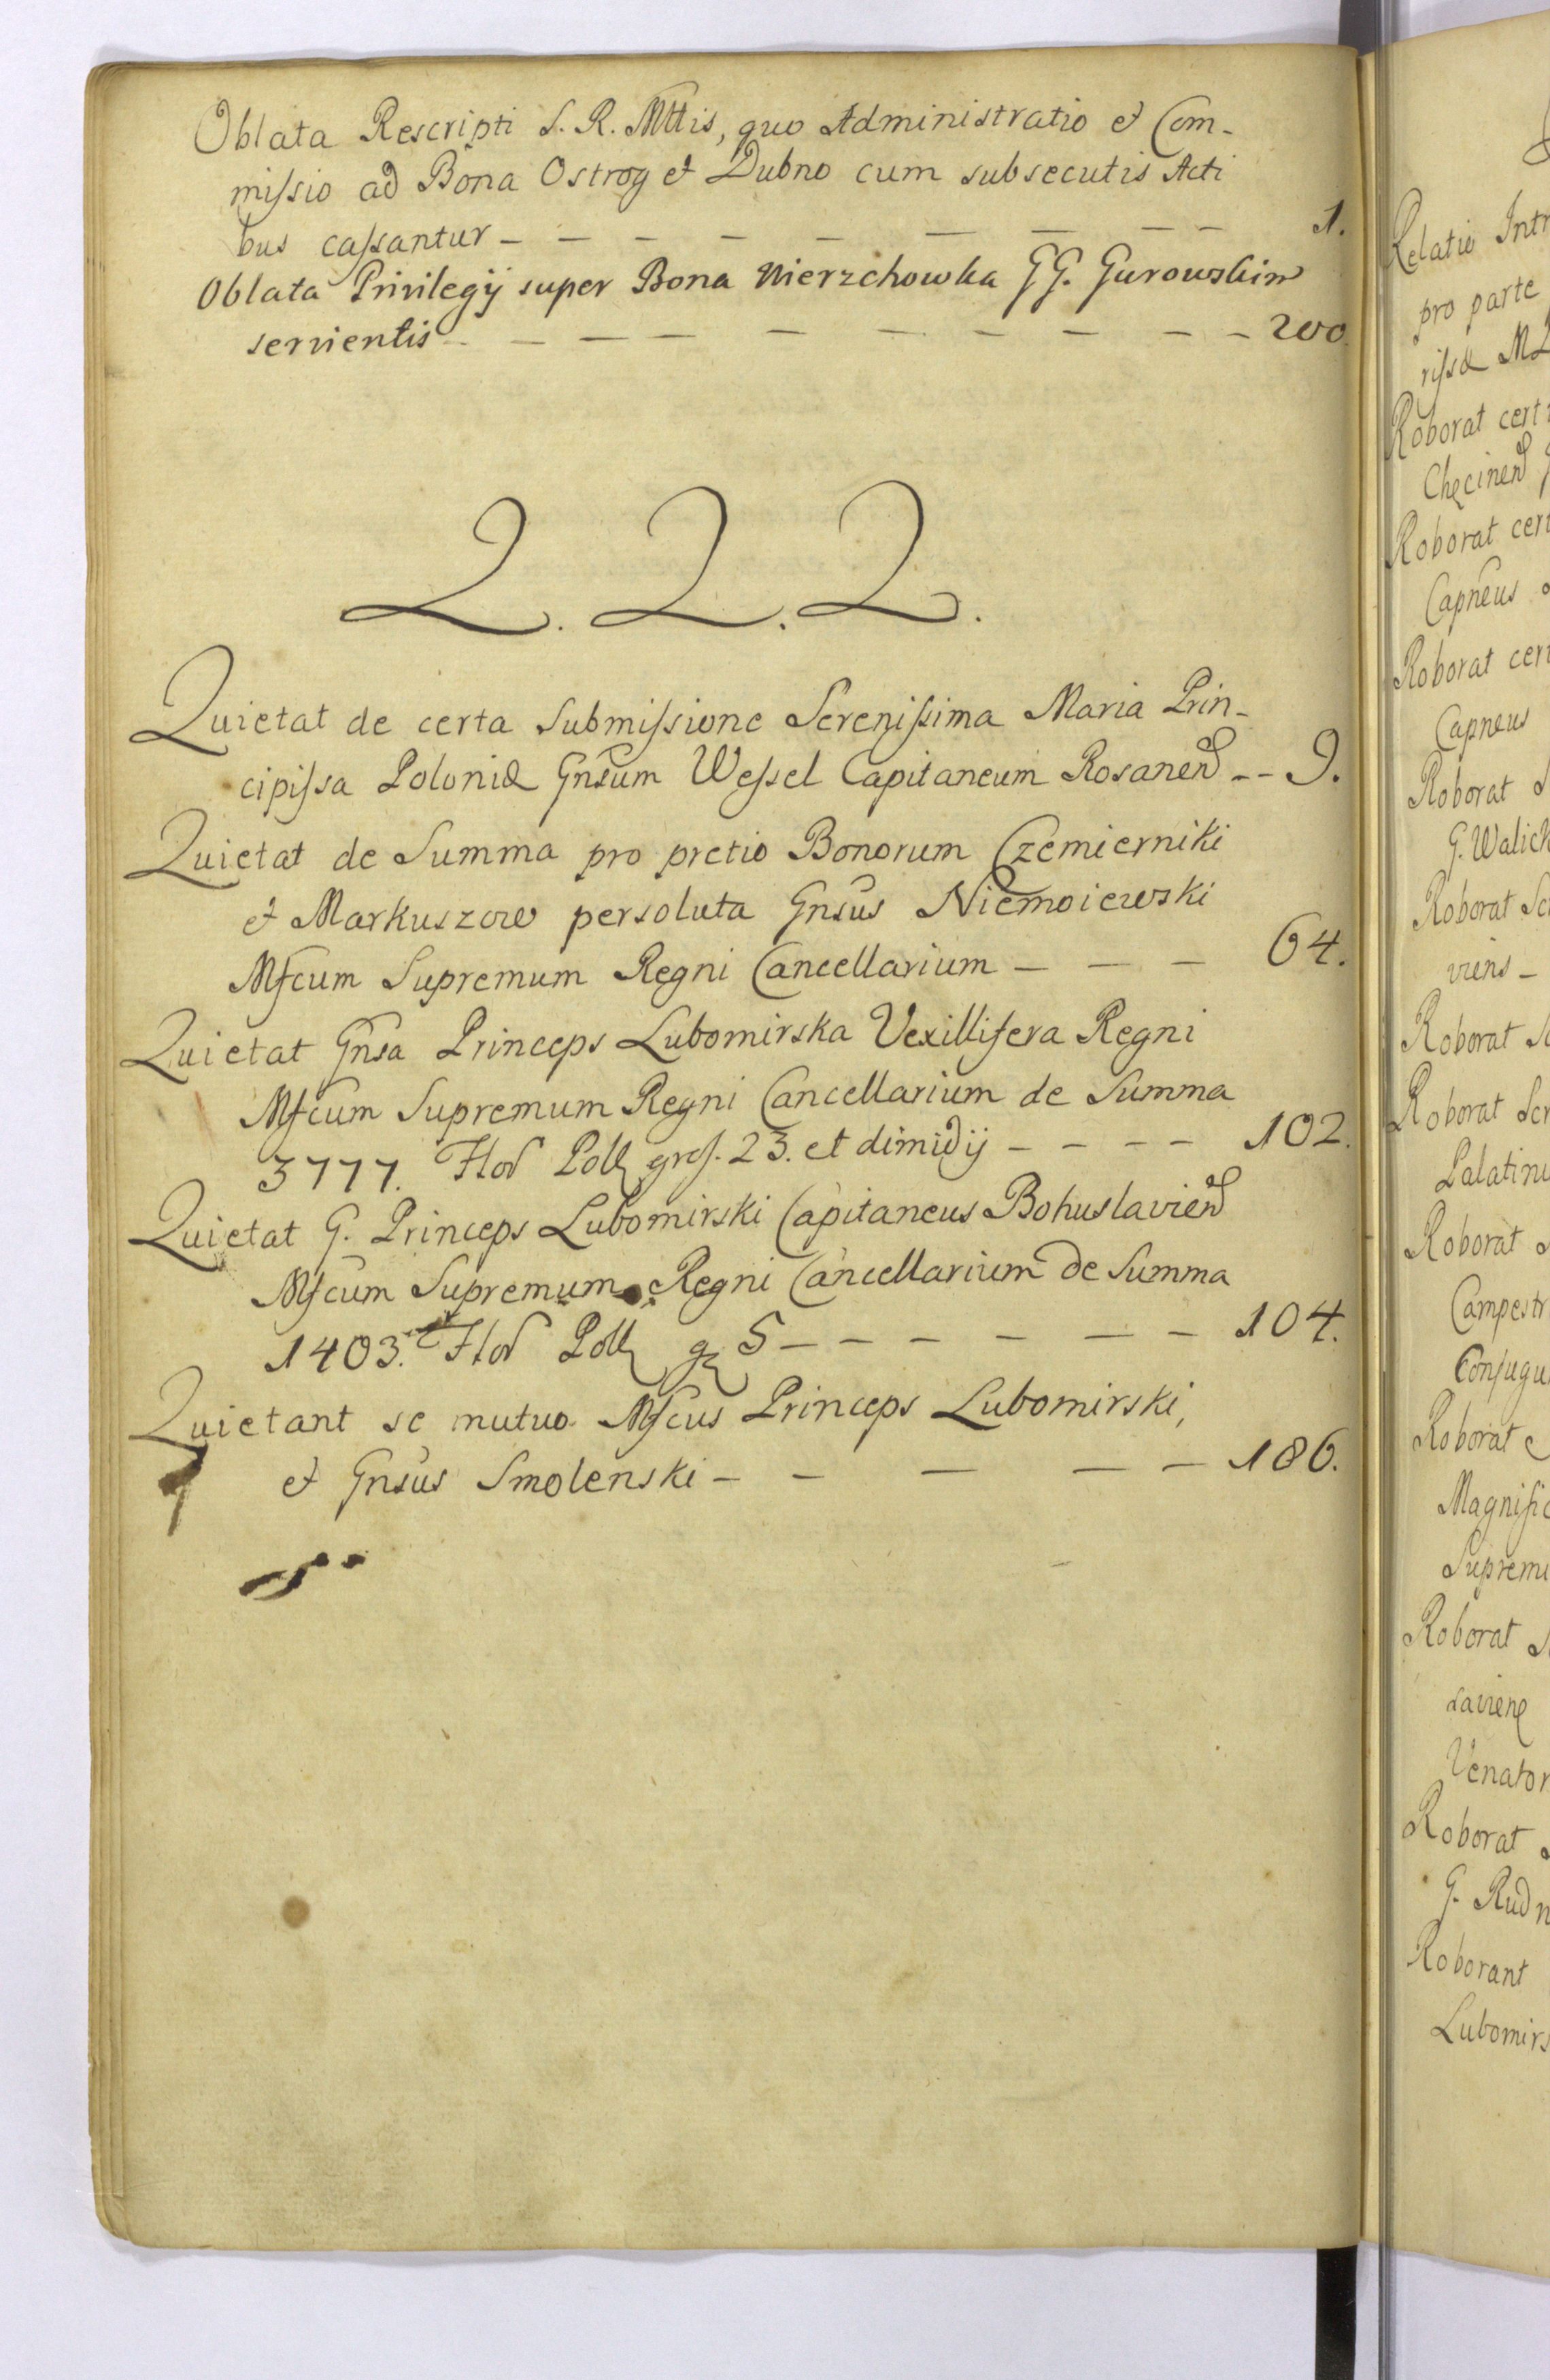 Oblata Rescripti S. R. Mttis, quo Administratio et Com-
missio ad Bona Ostrog et Dubno cum subsecutis Acti
bus cassantur - - - - - - - - - 1.
Oblata Privilegij super Bona Wierzchowka GG. Gurowskim
servientis - - - - - - - - - 200.
Q. Q. Q.
Quietat de certa Submissione Serenissima Maria Prin-
cipissa Poloniæ Gnsum Wessel Capitaneum Rosanen -- 9.
Quietat de Summa pro pretio Bonorum Czemierniki
et Markuszow persoluta Gnsus Niemoiewski
Mfcum Supremum Regni Cancellarium - - - 64.
Quietat Gnsa Princeps Lubomirska Vexillifera Regni
Mfcum Supremum Regni Cancellarium de Summa
3777. Flor Poll gros. 23. et dimidij - - - - 102.
Quietat G. Princeps Lubomirski Capitaneus Bohuslavien
Mfcum Supremum Regni Cancellarium de Summa
1403. Flor Poll g 5 - - - - - - 104.
Quietant se mutuo Mfcus Princeps Lubomirski,
et Gnsus Smolenski - - - - - 186.
Relatio Intr
pro parte
rissæ
Roborat cert
Chęcinen
Roborat cer
Capneus
Roborat cer
Capneus
Roborat
G. Walick
Roborat Sc
viens -
Roborat
Roborat Scr
Palatinu
Roborat
Campestr
Conjugu
Roborat
Magnific
Supremu
Roborat
laviene
Venator
Roborat
G. Rudn
Roborant
Lubomirs